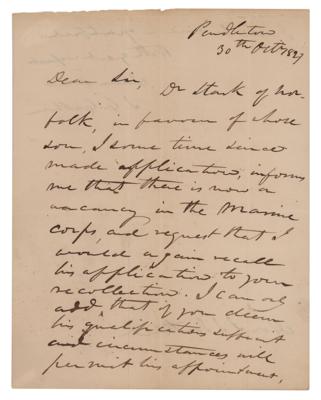 Pendleton
30th Octr 1827
Dear Sir, Dr Stark of Nor-
folk, in favour of whose
son, I some time since
made application, informs
me that there is now a
vacancy in the Marine
Corps, and request that I
would again recall
his application to your
recollection. I can only
add, that if you deem
his qualifications sufficient
and circumstances will
permit his appointment,